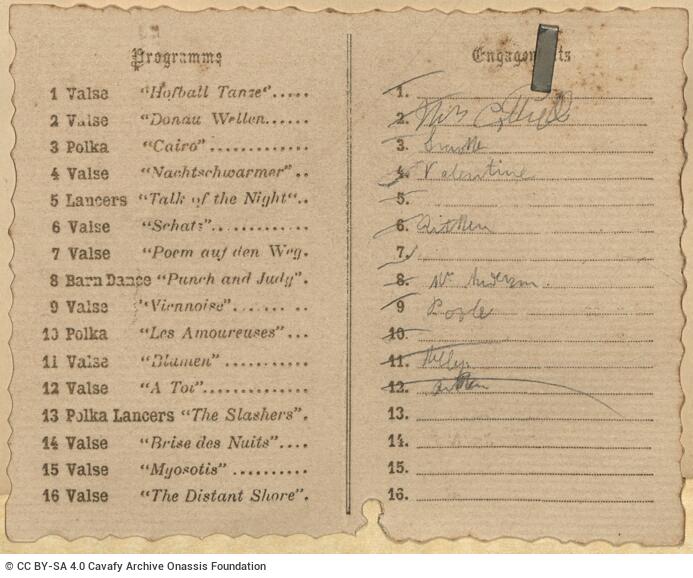 Programme
1 Valse "Hofball Tanze".....
2 Valse "Donau Wellen.....
3 Polka "Cairo".............
4 Valse "Nachtschwarmer"..
5 Lancers "Talk of the Night"..
6 Valse "Schatz"............
7 Valse "Poem auf den Weg.
8 Barn Dance "Punch and Judy".
9 Valse "Viennoise"..........
10 Polka "Les Amoureuses"...
11 Valse "Blumen" ...........
12 Valse "A Toi".............
13 Polka Lancers "The Slashers".
14 Valse "Brise des Nuits"....
15 Valse "Myosotis" ..........
16 Valse "The Distant Shore".
Engagements
1.
2.
3.
4. Valentine
5.
6. Aitken
7.
8. Mr Anderson.
9 Poole
10.
11.
12.
13.
14.
15.
16.
© CC BY-SA 4.0 Cavafy Archive Onassis Foundation